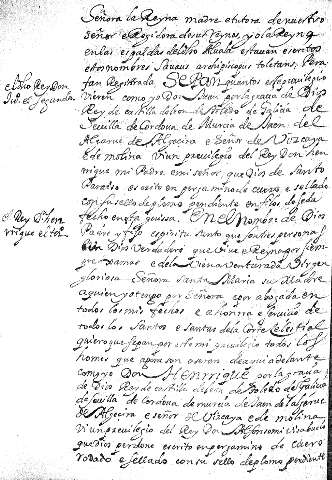 Señora la Reyna madre etutora de nuestro
señor e Regidora desus Reynos, y ola Reyna
en las espaldas del dho Aluala estauan escritos
estos nombres Sauaus archiepiscopus toletanus, Pera
fan Registrada. SEPAN quantos este preuilegio
vieren como yo Don Iuan por la gracia de Dios
Rey de castilla de Leon de Toledo de Galicia de
Seuilla de Cordoua de Murcia de Jaen del
Algarue de Algecira e Señor de Vizcaya
e de molina. Vi un preuilegio del Rey Don Hen
rrique mi Padre e mi señor, que Dios de Santo
Paraiso escrito en pergamino de cuero e sellado
con su sello de plomo pendiente en filos de seda
fecho en esta guissa. EN EL Nombre de Dios
Padre y fijo espiritu Santo que son tres personas
un Dios Verdadero que viue e Reyna por siem
pre Jamas e de la Vienauenturada Virgen
gloriosa Señora Santa Maria su Madre
a quien yo tengo por Señora e por abogada en
todos los mis fechos e a honrra e seruicio de
todos los Santos e Santas de la Corte celestial
quiero que sepan por este mi preuilegio todos los
homes que agora son o seran de aqui adelante
como yo Don HENRRIQUE por la gracia
de Dios Rey de castilla de Leon de Toledo de Galicia
de seuilla de Cordoua de murcia de Jaen del algarue
de Algecira e señor de Vizcaya e de molina
vi un preuilegio del Rey Don Alfonso mi visabuelo
que dios perdone escrito en pergamino de cuero
rodado e sellado con su sello de plomo pendiente
el Dho Rey Don
Ju.º el segundo
el Rey D. hen
rrique el ter.º